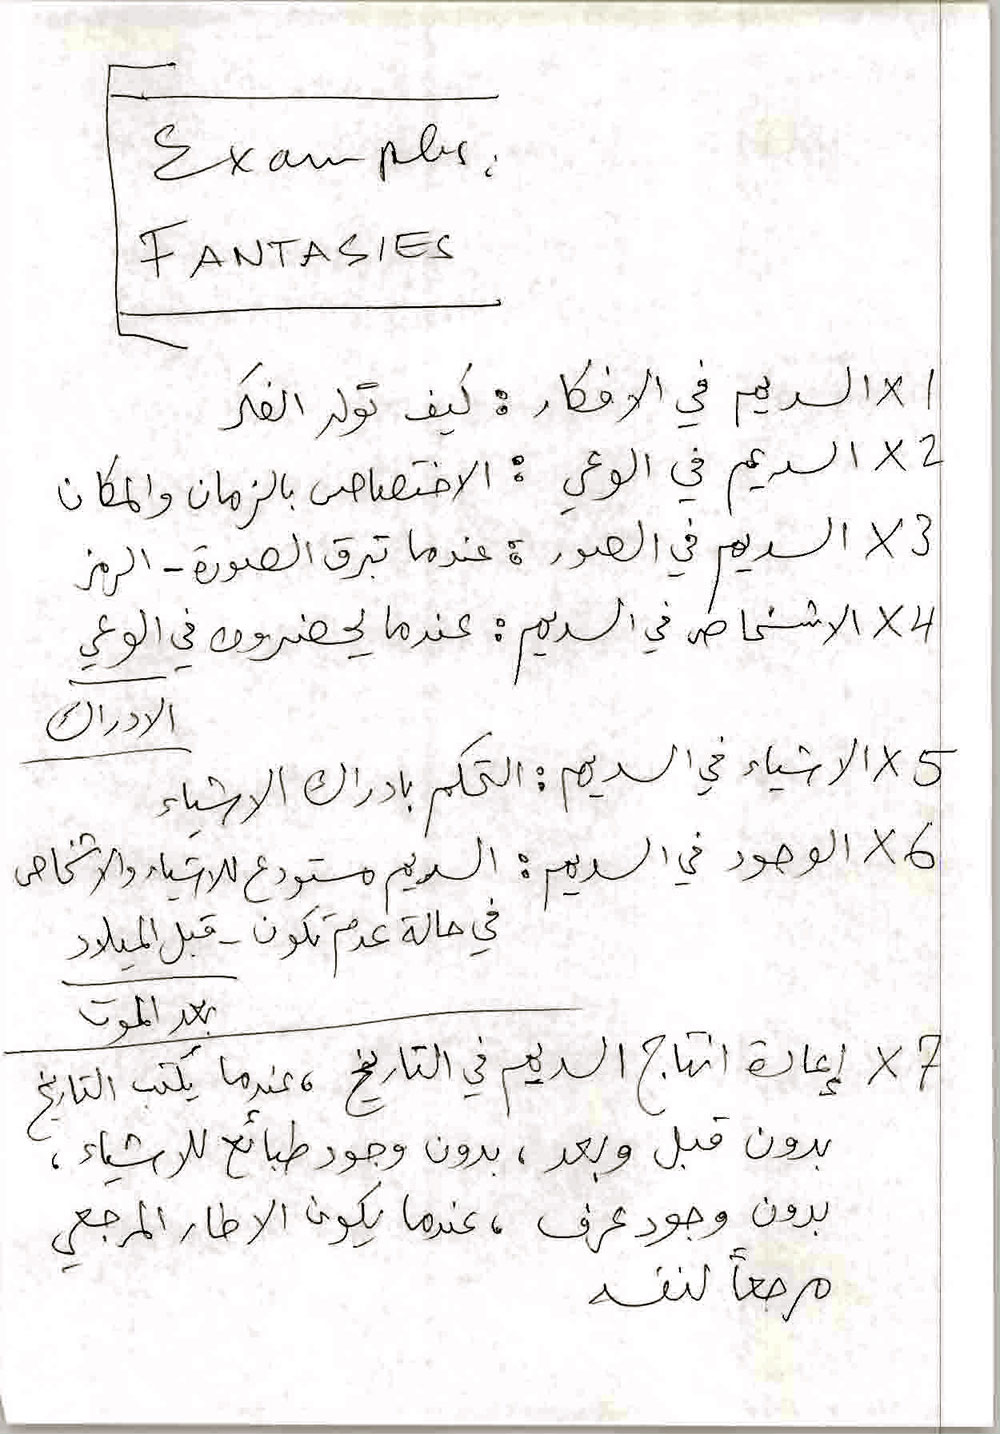 Examples.
FANTASIES
X1 السديم في الافكار : كيف تولد الفكر
X2 السديم في الوعي : الاختصاص بالزمان والمكان
X3 السديم في الصور : عندما تبرق الصورة - الرمز
X4 الاشخاص في السديم : عندما يحضرون في الوعي
الادراك
X5 الاشياء في السديم : التحكم بادراك الاشياء
X6 الوجود في السديم : السديم مستودع للاشياء والاشخاص
في حالة عدم تكون - قبل الميلاد
بعد الموت
X7 إعادة انتاج السديم في التاريخ ، عندما يُكتب التاريخ
بدون قبل وبعد ، بدون وجود طبائع للاشياء ،
بدون وجود عرف ، عندما يكون الاطار المرجعي
مرجعاً لنفسه